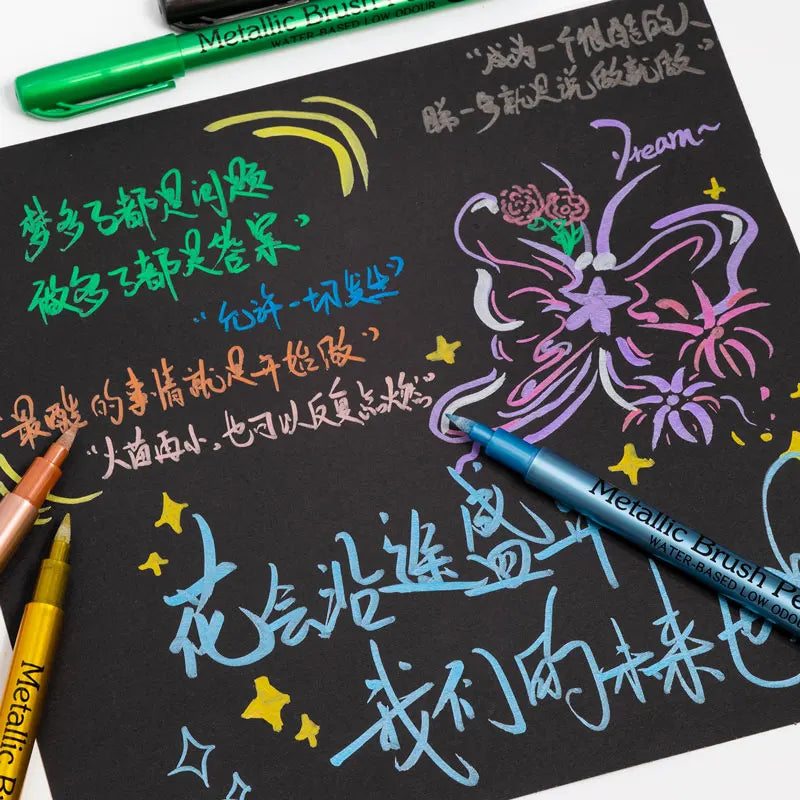 Metallic Brush Pen
WATER-BASED LOW ODOUR
“成为一个很酷的人
第一步就是说做就做”
Dream~
梦多了都是问题
做多了都是答案”
“允许一切发生”
“最酷的事情就是开始做”
“火苗再小，也可以反复点燃”
花会沿途盛开
我们的未来也
Metallic Brush Pe
WATER-BASED LOW ODOUR
Metallic B